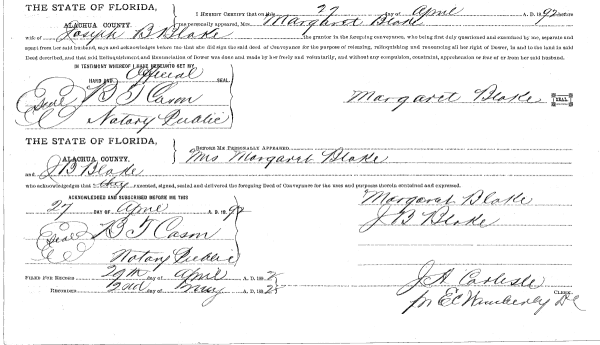 THE STATE OF FLORIDA, I HEREBY CERTIFY that on this 27 day of April A. D. 1892 before
ALACHUA COUNTY. me personally appeared, Mrs. Margaret Blake
wife of Joseph B Blake the grantor in the foregoing conveyance, who being first duly questioned and examined by me, separate and
apart from her said husband, says and acknowledges before me that she did sign the said deed of Conveyance for the purpose of releasing, relinquishing and renouncing all her right of Dower, in and to the land in said
Deed described, and that said Relinquishment and Renunciation of Dower was done and made by her freely and voluntarily, and without any compulsion, constraint, apprehension or fear of or from her said husband.
IN TESTIMONY WHEREOF I HAVE HEREUNTO SET MY
HAND AND Official SEAL
Seal B T Cason
Margaret Blake SEAL
Notary Public
THE STATE OF FLORIDA, BEFORE ME PERSONALLY APPEARED
ALACHUA COUNTY, Mrs Margaret Blake
and J B Blake
who acknowledges that they executed, signed, sealed and delivered the foregoing Deed of Conveyance for the uses and purposes therein contained and expressed.
ACKNOWLEDGED AND SUBSCRIBED BEFORE ME THIS
Margaret Blake
27 DAY OF April A. D. 1892
J B Blake
Seal B T Cason
Notary Public
FILED FOR RECORD 29th day of April A. D. 189
RECORDED day of May A. D. 189
J A Carlisle CLERK.
pr E C Wimberly D C